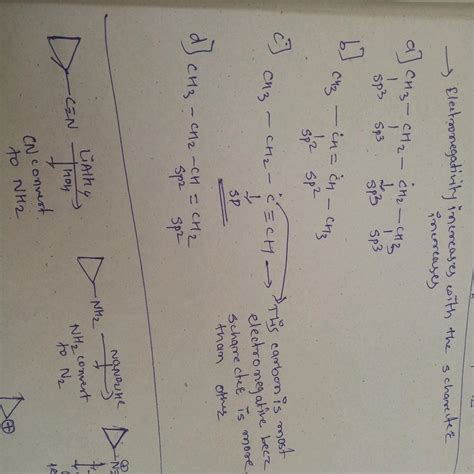 → Electronegativity increases with the scharecter
increases
a] CH3 - CH2 - CH2 - CH3
sp3 sp3 sp3 sp3
b] CH3 - CH = CH - CH3
sp2 sp2
c] CH3 - CH2 - C ≡ CH → This carbon is most
sp
electronegative becz
scharecter is more
than other
d] CH3 - CH2 - CH = CH2
sp2 sp2
C≡N
LiAlH4
HOH
CN convert
to NH2
NH2
NaNO2/HCl
NH2 convert
to N2
⊕
N≡
⊕